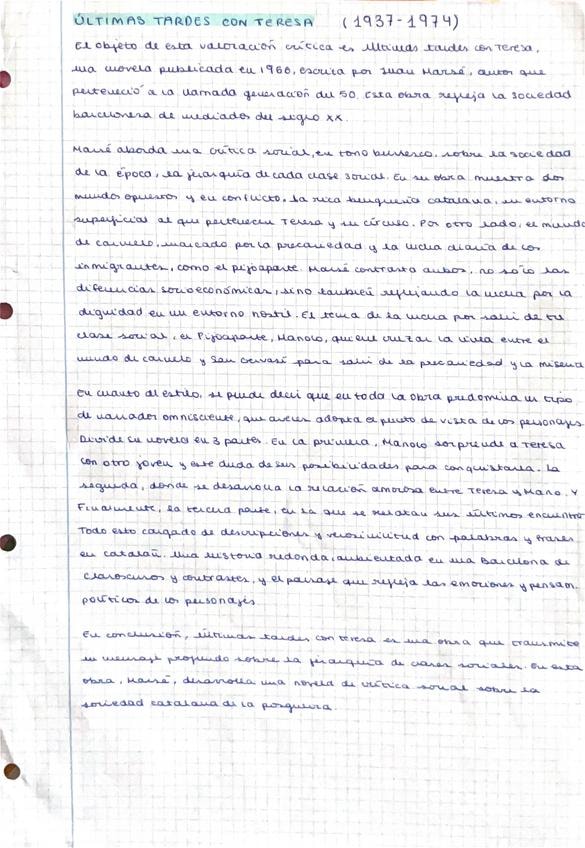 ÚLTIMAS TARDES CON TERESA (1937-1974)
El objeto de esta valoración crítica es Últimas tardes con Teresa,
una novela publicada en 1966, escrita por Juan Marsé, autor que
perteneció a la llamada generación del 50. Esta obra refleja la sociedad
barcelonesa de mediados del siglo XX.
Marsé aborda una crítica social, en tono burlesco, sobre la sociedad
de la época, la jerarquía de cada clase social. En su obra muestra dos
mundos opuestos y en conflicto, la rica burguesía catalana, un entorno
superficial al que pertenecen Teresa y su círculo. Por otro lado, el mundo
de carmelo, marcado por la precariedad y la lucha diaria de los
inmigrantes, como el pijoaparte. Marsé contrasta ambos, no sólo las
diferencias socioeconómicas, sino también reflejando la lucha por la
dignidad en un entorno hostil. El tema de la lucha por salir de tu
clase social, el Pijoaparte, Manolo, quiere cruzar la línea entre el
mundo de carmelo y San Gervasi para salir de la precariedad y la miseria
En cuanto al estilo, se puede decir que en toda la obra predomina un tipo
de narrador omnisciente, que a veces adopta el punto de vista de los personajes.
Divide su novela en 3 partes. En la primera, Manolo sorprende a Teresa
con otro joven y este duda de sus posibilidades para conquistarla. La
segunda, donde se desarrolla la relación amorosa entre Teresa y Mano. Y
Finalmente, la tercera parte, en la que se relatan sus últimos encuentro
Todo esto cargado de descripciones y verosimilitud con palabras y frases
en catalán. Una historia redonda, ambientada en una Barcelona de
claroscuros y contrastes, y el paisaje que refleja las emociones y pensam.
políticos de los personajes.
En conclusión, últimas tardes con teresa es una obra que transmite
un mensaje profundo sobre la jerarquía de clases sociales. En esta
obra, Marsé, desarrolla una novela de crítica social sobre la
sociedad catalana de la posguerra.